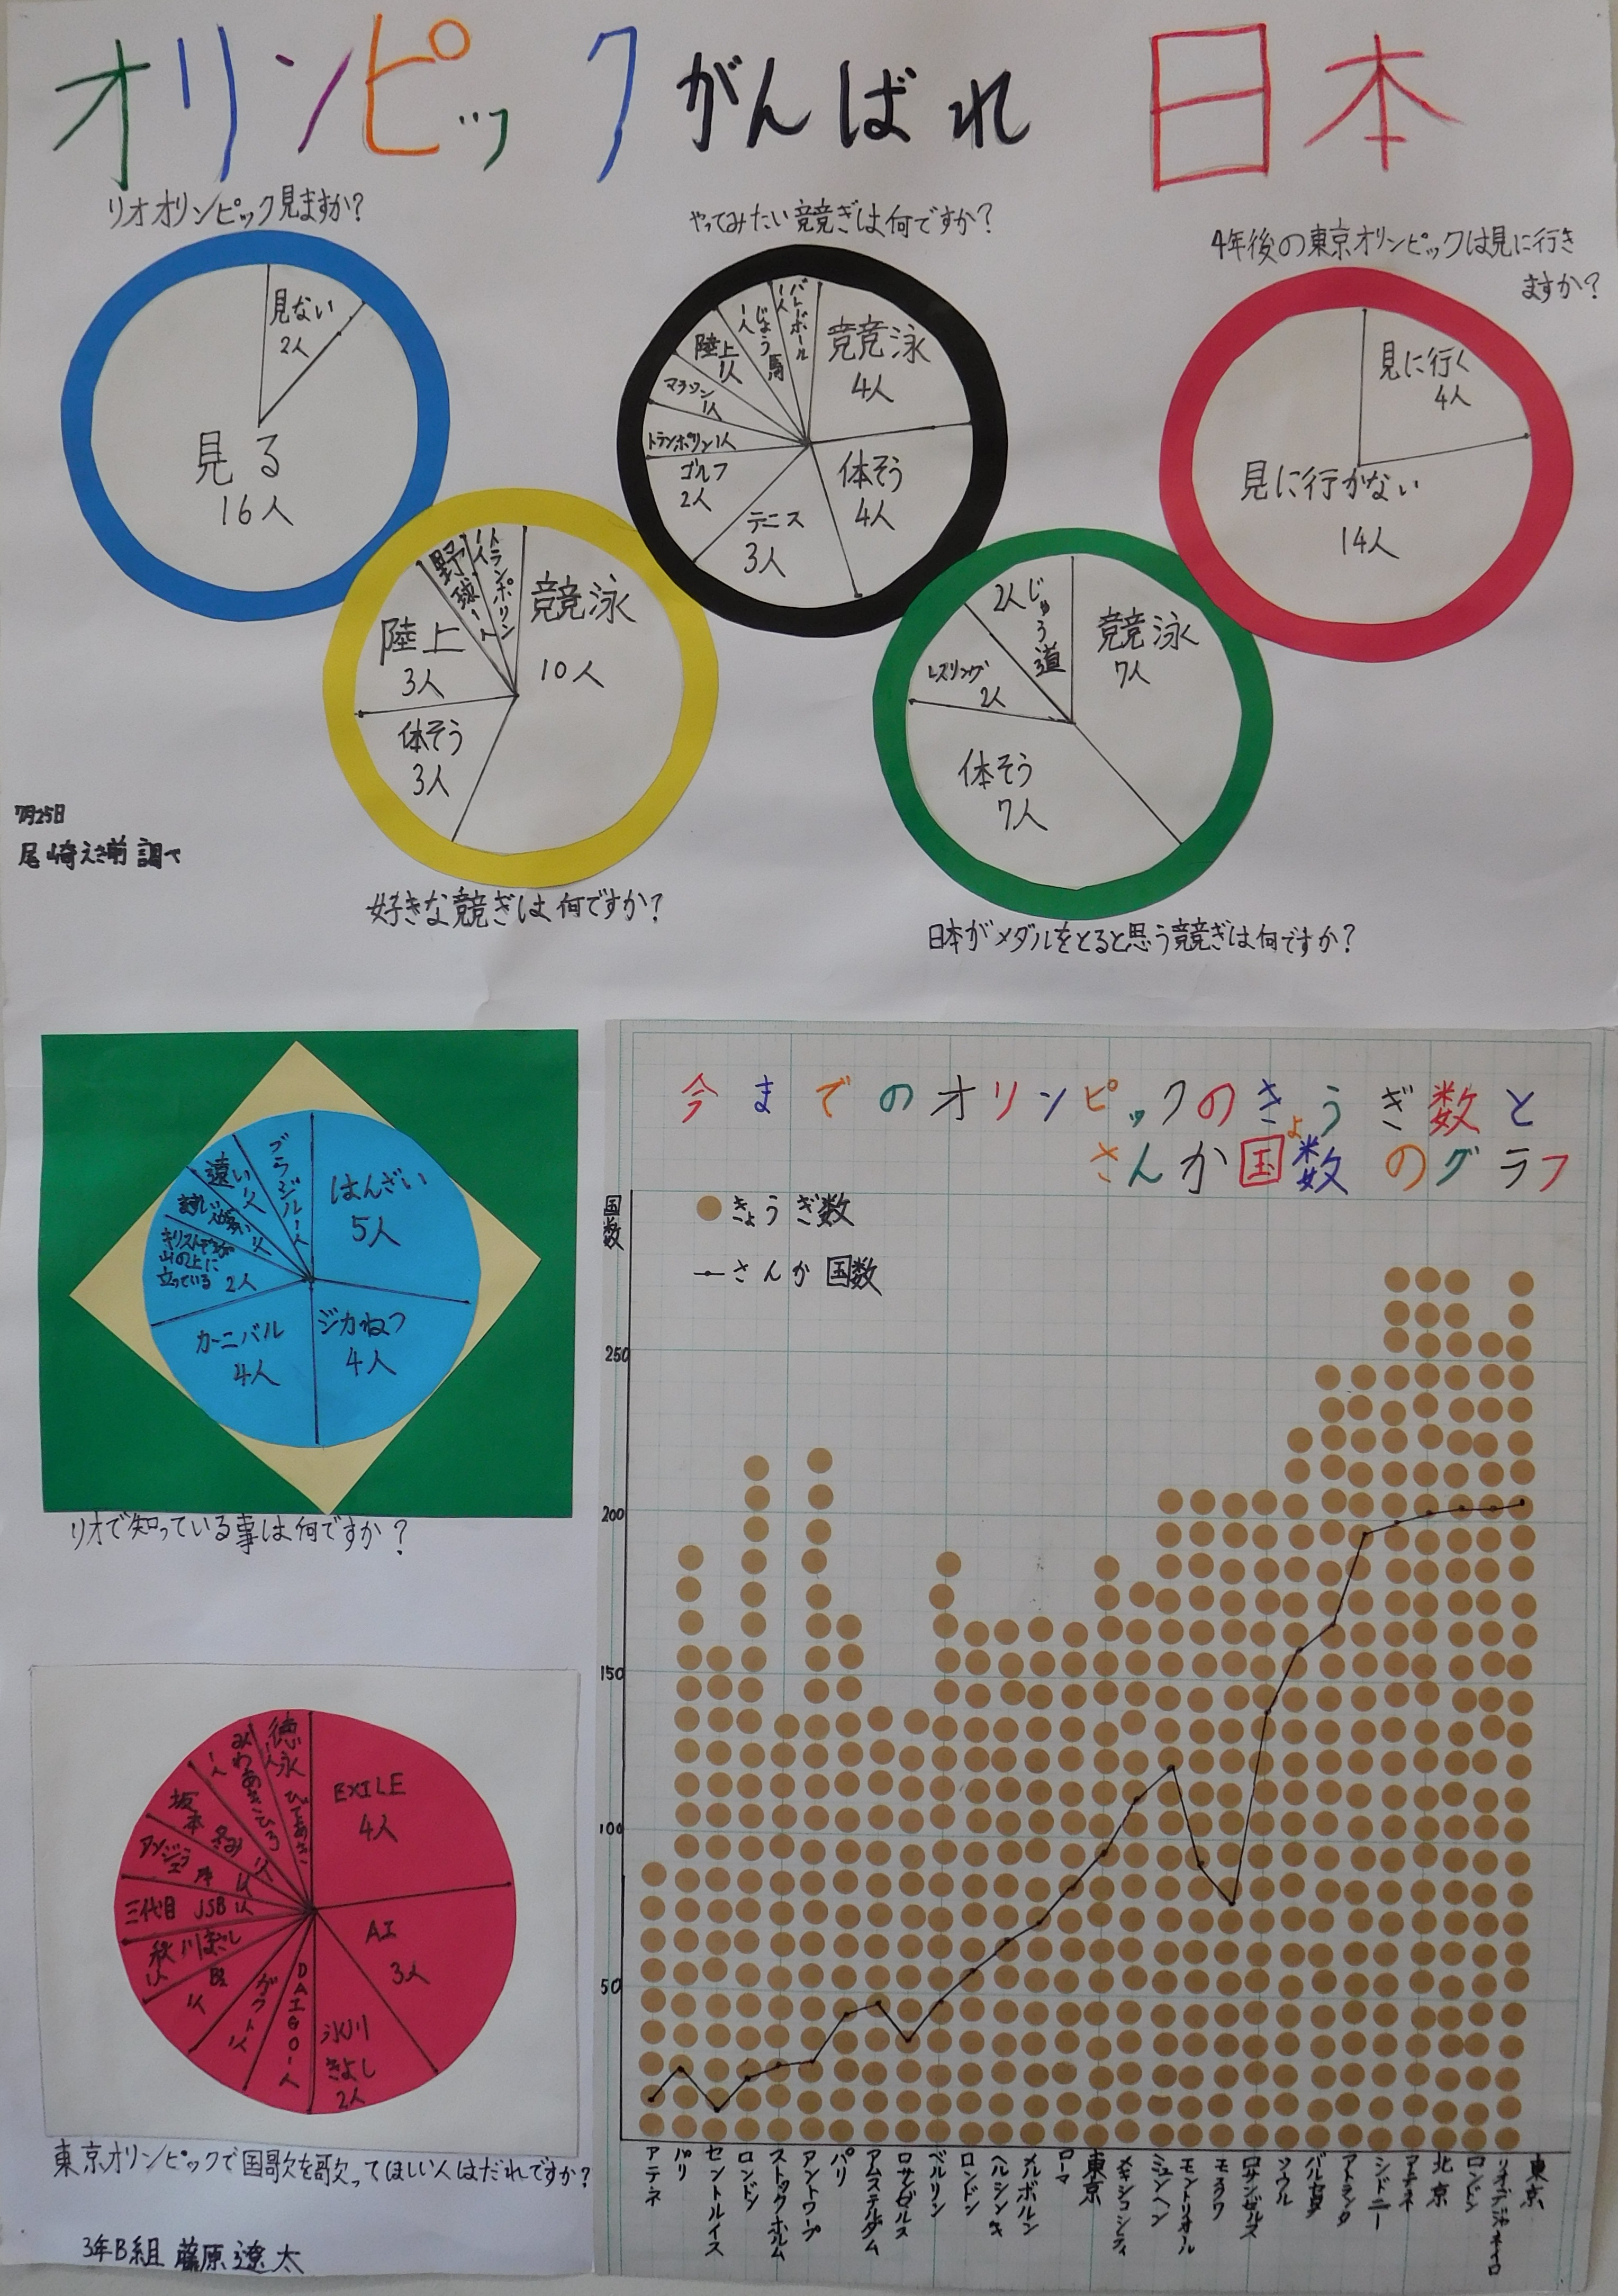 オリンピックがんばれ 日本
リオオリンピック見ますか?
見ない
2人
見る
16人
やってみたい競ぎは何ですか?
競泳
4人
体そう
4人
テニス
3人
ゴルフ
2人
トランポリン1人
マラソン
1人
陸上
1人
じょう馬
1人
バレーボール
1人
4年後の東京オリンピックは見に行き
ますか?
見に行く
4人
見に行かない
14人
競泳
10人
体そう
3人
陸上
3人
野球1人
トランポリン
1人
好きな競ぎは何ですか?
競泳
7人
体そう
7人
レスリング
2人
じゅう道
2人
日本がメダルをとると思う競ぎは何ですか?
7月25日
尾崎えき前 調べ
はんざい
5人
ジカねつ
4人
カーニバル
4人
キリストぞうが
山の上に
立っている 2人
1人
遠い
1人
ブラジル1人
リオで知っている事は何ですか?
EXILE
4人
AI
3人
氷川
きよし
2人
DAIGO1人
ガクト1人
B'z
1人
秋川まさし
1人
三代目 JSB 1人
アンジェラ
アキ
1人
坂本冬み
1人
みわあきひろ
1人
徳永ひであき
1人
東京オリンピックで国歌を歌ってほしい人はだれですか?
3年B組 藤原遼太
今までのオリンピックのきょうぎ数と
さんか国数のグラフ
国数
きょうぎ数
さんか国数
250
200
150
100
50
アテネ
パリ
セントルイス
ロンドン
ストックホルム
アントワープ
パリ
アムステルダム
ロサンゼルス
ベルリン
ロンドン
ヘルシンキ
メルボルン
ローマ
東京
メキシコシティ
ミュンヘン
モントリオール
モスクワ
ロサンゼルス
ソウル
バルセロナ
アトランタ
シドニー
アテネ
北京
ロンドン
リオデジャネイロ
東京